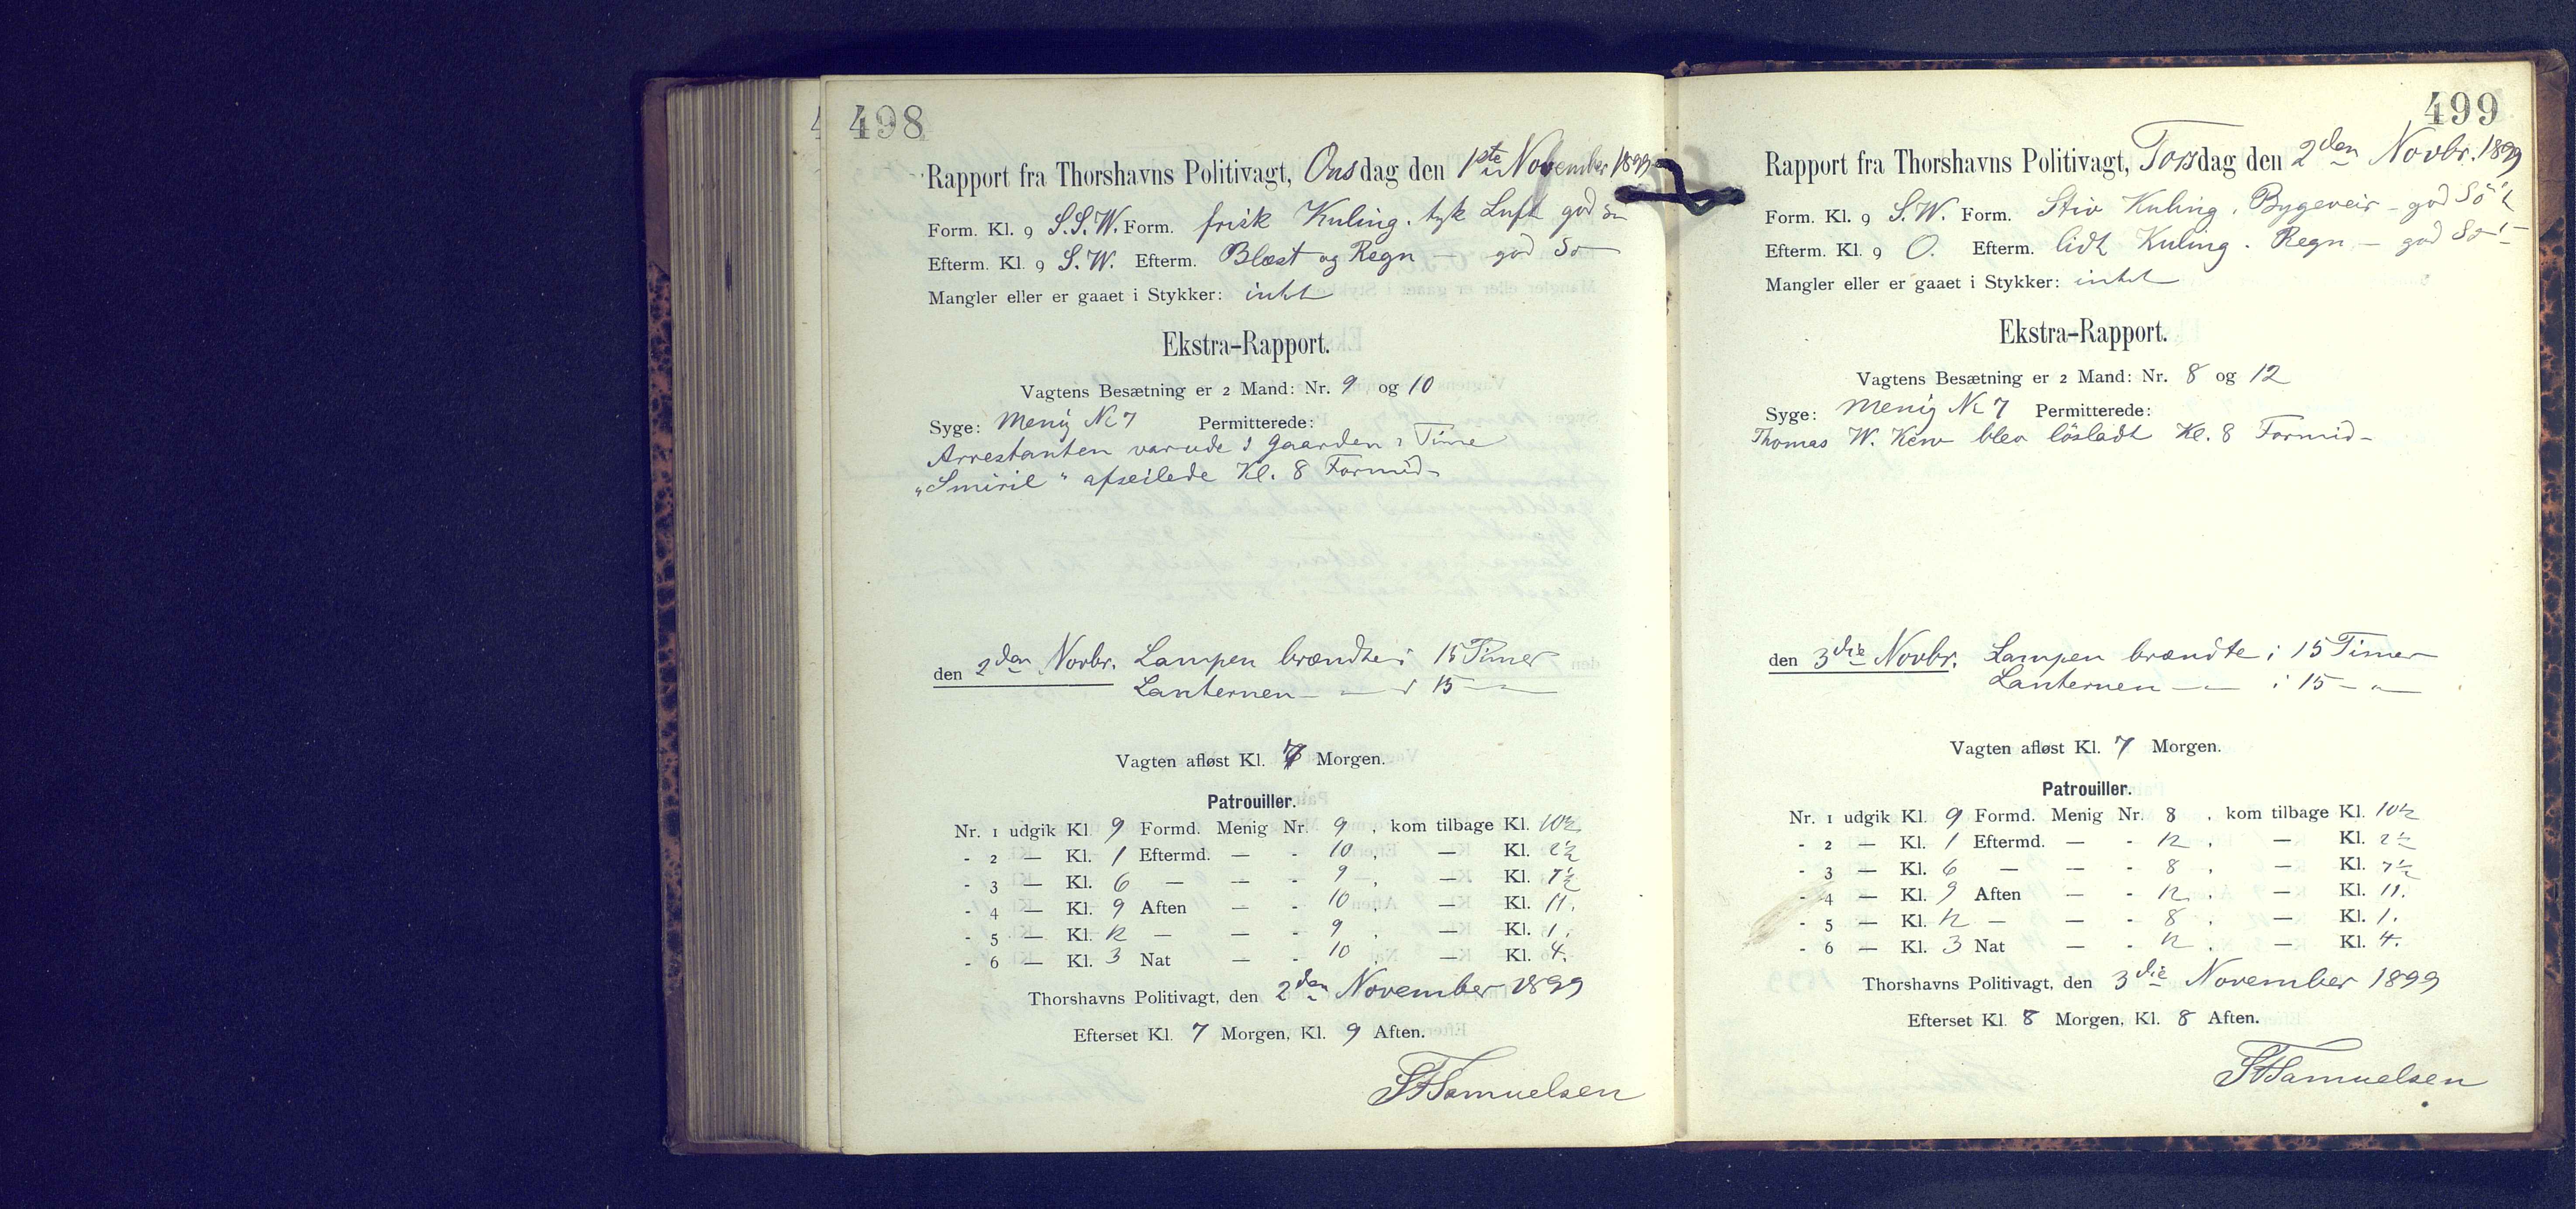 498
Rapport fra Thorshavns Politivagt, Onsdag den 1ste November 1899
Form. Kl. 9 S.S.W. Form. frisk Kuling. tyk Luft god So
Efterm. Kl. 9 S.W. Efterm. Blæst og Regn — god So
Mangler eller er gaaet i Stykker: intet
Ekstra-Rapport.
Vagtens Besætning er 2 Mand: Nr. 9 og 10
Syge: Menig No 7 Permitterede:
Arrestanten var ude i Gaarden 1 Time
"Smiril" afseilede Kl. 8 Formid-
den 2den Novbr. Lampen brændte i 15 Timer
Lanternen — " — i 15 — " —
Vagten afløst Kl. 7 Morgen.
Patrouiller.
Nr. 1 udgik Kl. 9 Formd. Menig Nr. 9, kom tilbage Kl. 10½
- 2 — Kl. 1 Eftermd. — - 10, — Kl. 2½
- 3 — Kl. 6 — — - 9, — Kl. 7½
- 4 — Kl. 9 Aften — - 10, — Kl. 11.
- 5 — Kl. 12 — — - 9, — Kl. 1.
- 6 — Kl. 3 Nat — - 10, — Kl. 4.
Thorshavns Politivagt, den 2den November 1899
Efterset Kl. 7 Morgen, Kl. 9 Aften.
Samuelsen
499
Rapport fra Thorshavns Politivagt, Torsdag den 2den Novbr. 1899
Form. Kl. 9 S.W. Form. Stiv Kuling. Bygeveir - god Sö
Efterm. Kl. 9 O. Efterm. lidt Kuling. Regn — god So
Mangler eller er gaaet i Stykker: intet
Ekstra-Rapport.
Vagtens Besætning er 2 Mand: Nr. 8 og 12
Syge: Menig No 7 Permitterede:
Thomas W. blev lösladt Kl. 8 Formid-
den 3die Novbr. Lampen brændte i 15 Timer
Lanternen — " — i 15 — " —
Vagten afløst Kl. 7 Morgen.
Patrouiller.
Nr. 1 udgik Kl. 9 Formd. Menig Nr. 8, kom tilbage Kl. 10½
- 2 — Kl. 1 Eftermd. — - 12, — Kl. 2½
- 3 — Kl. 6 — — - 8, — Kl. 7½
- 4 — Kl. 9 Aften — - 12, — Kl. 11.
- 5 — Kl. 12 — — - 8, — Kl. 1.
- 6 — Kl. 3 Nat — - 12, — Kl. 4.
Thorshavns Politivagt, den 3die November 1899
Efterset Kl. 8 Morgen, Kl. 8 Aften.
Samuelsen